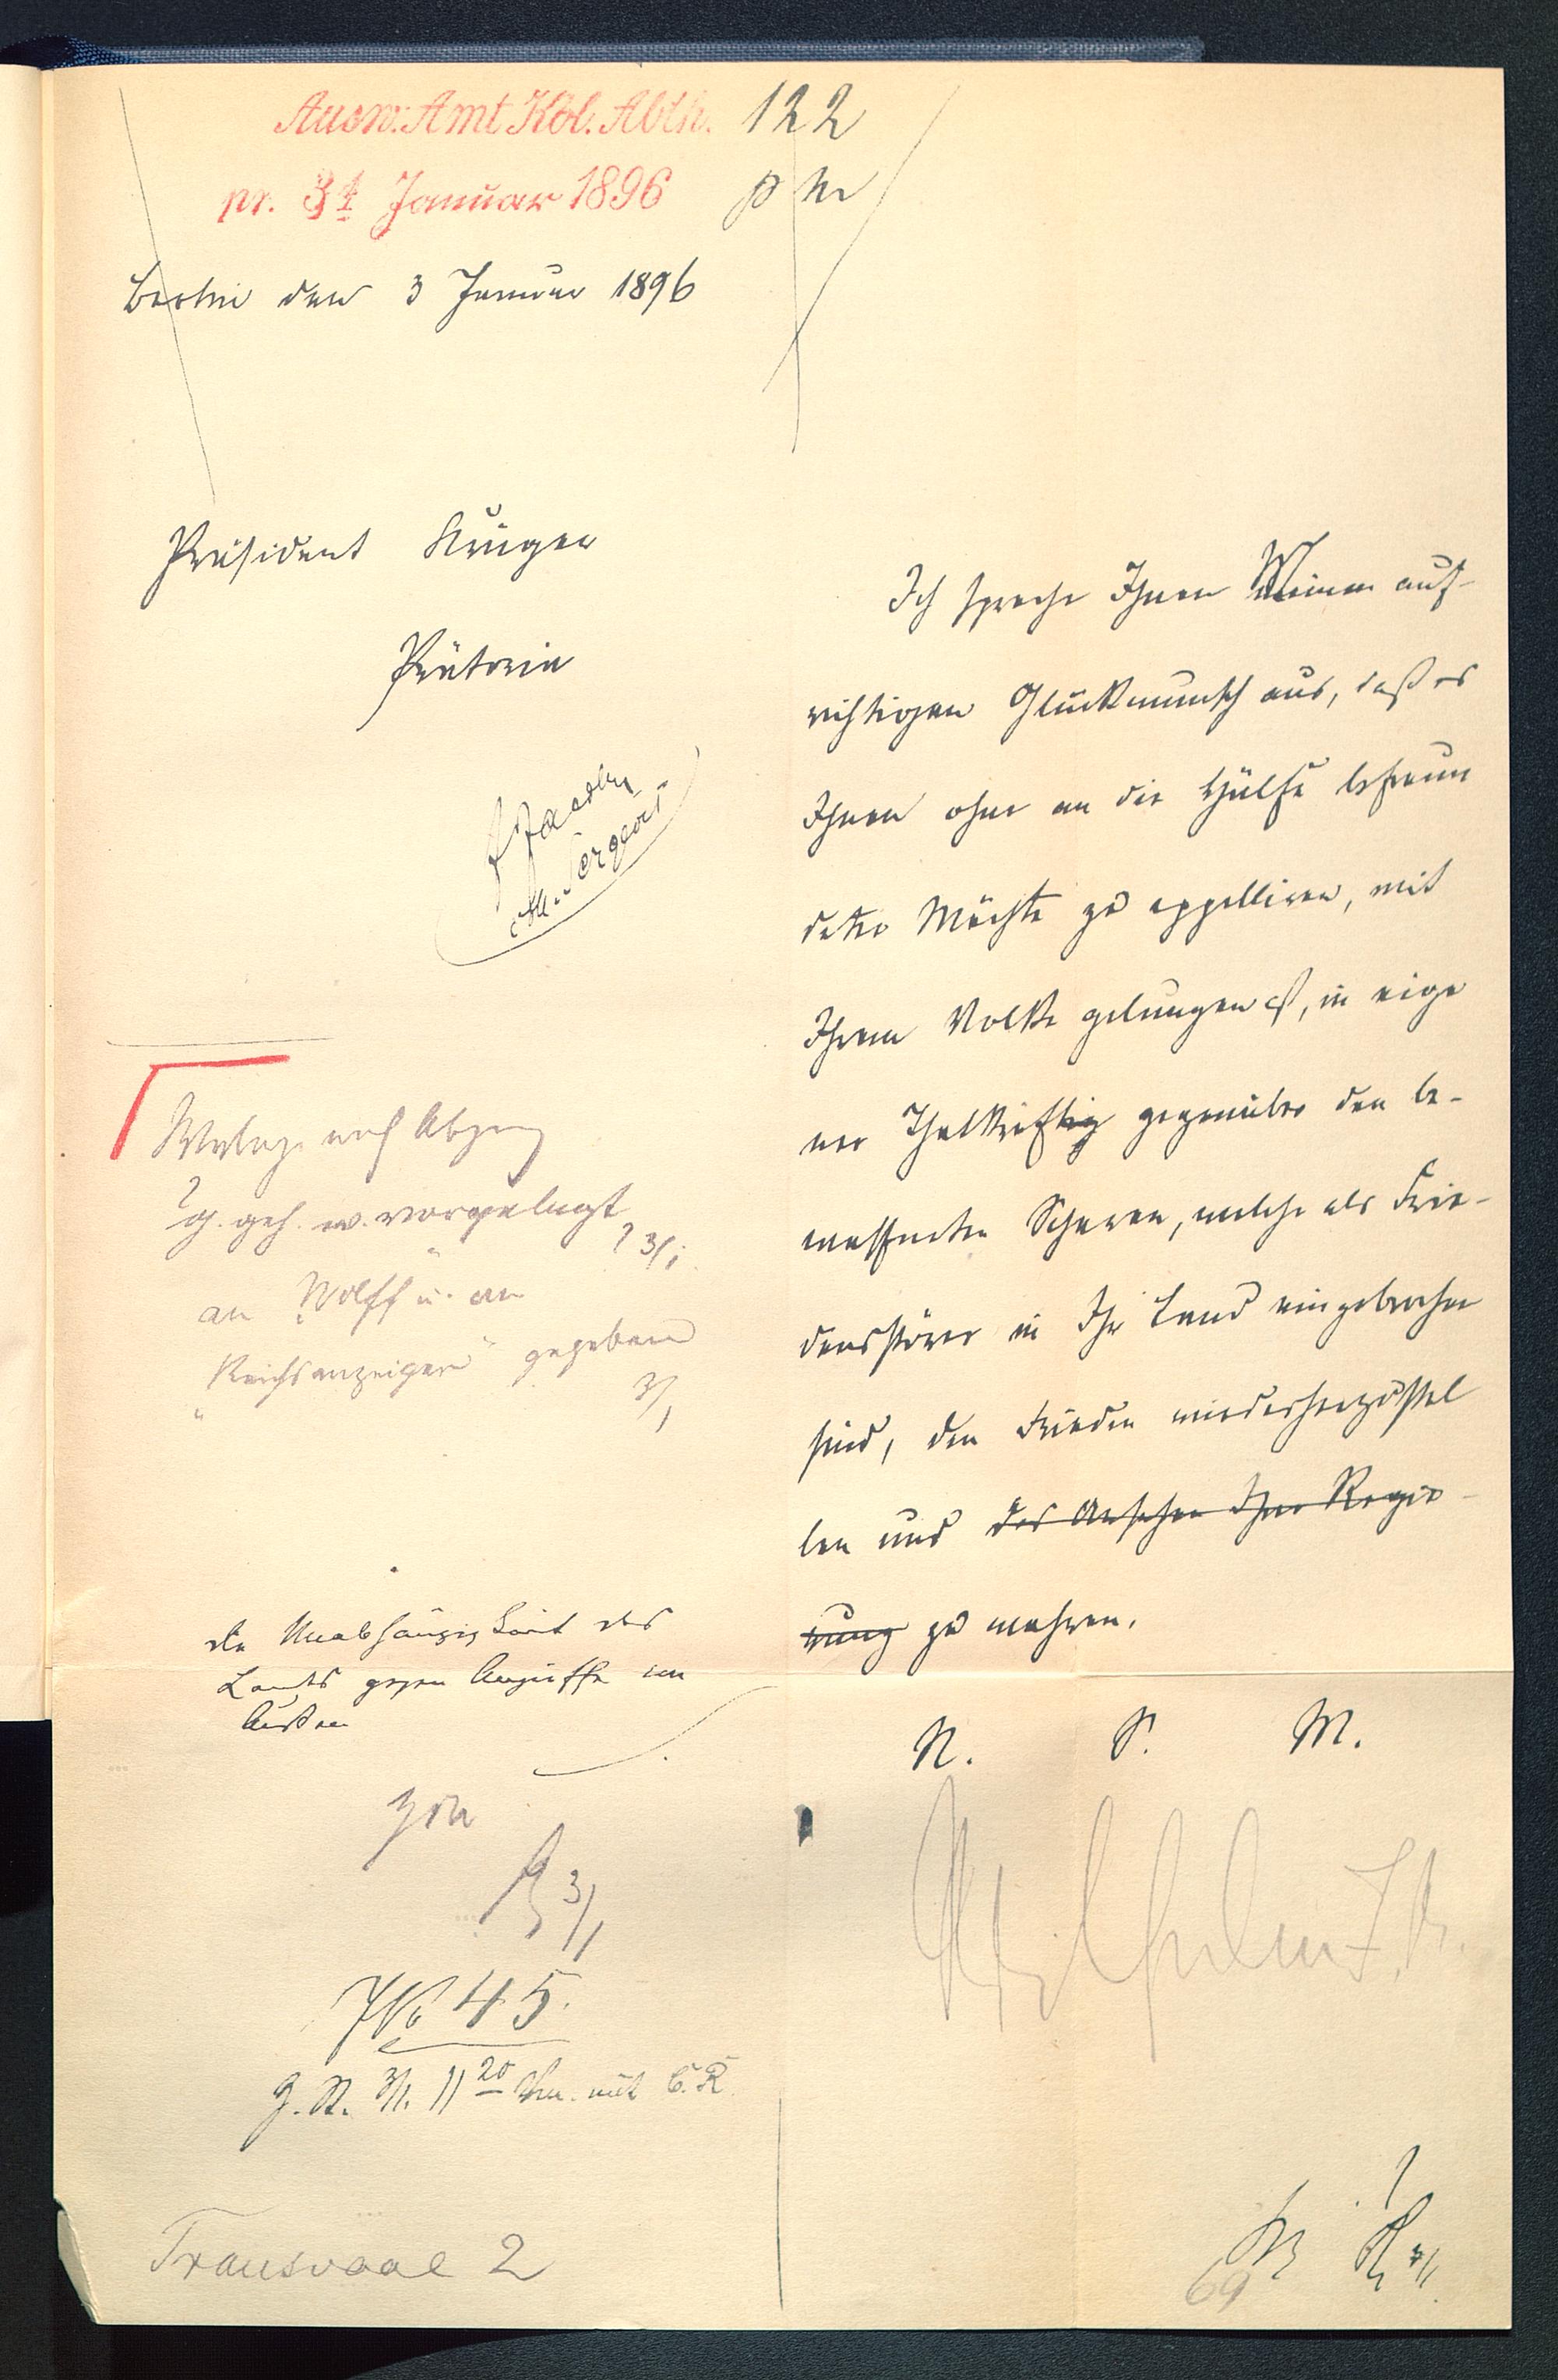 Ausw. Amt Kol. Abth. 122
pr. 31 Januar 1896 p m
Berlin den 3 Januar 1896
Präsident Krüger
Prätoria
Ich spreche Ihnen Meinen auf-
richtigen Glückwunsch aus, daß es
Ihnen ohne an die Hülfe befreun
deter Mächte zu appelliren, mit
Ihrem Volke gelungen ist, in eige
ner Thatkräftig gegenüber den be-
waffneten Scharen, welche als Frie-
densstörer in Ihr Land eingebrochen
sind, den Frieden wiederherzustel
len und das Ansehen Ihrer Regie-
rung zu wahren.
N. S. M.
Wilhelm I. R.
nach Abgang
geh. vorgelegt
3/1
an Wolff u. an
"Reichsanzeiger" gegeben
3/1
die Unabhängigkeit des
Landes gegen Angriffe von
Außen
3/1
No 45.
3/1. 11 20 Vm. mit
Transvaal 2
69